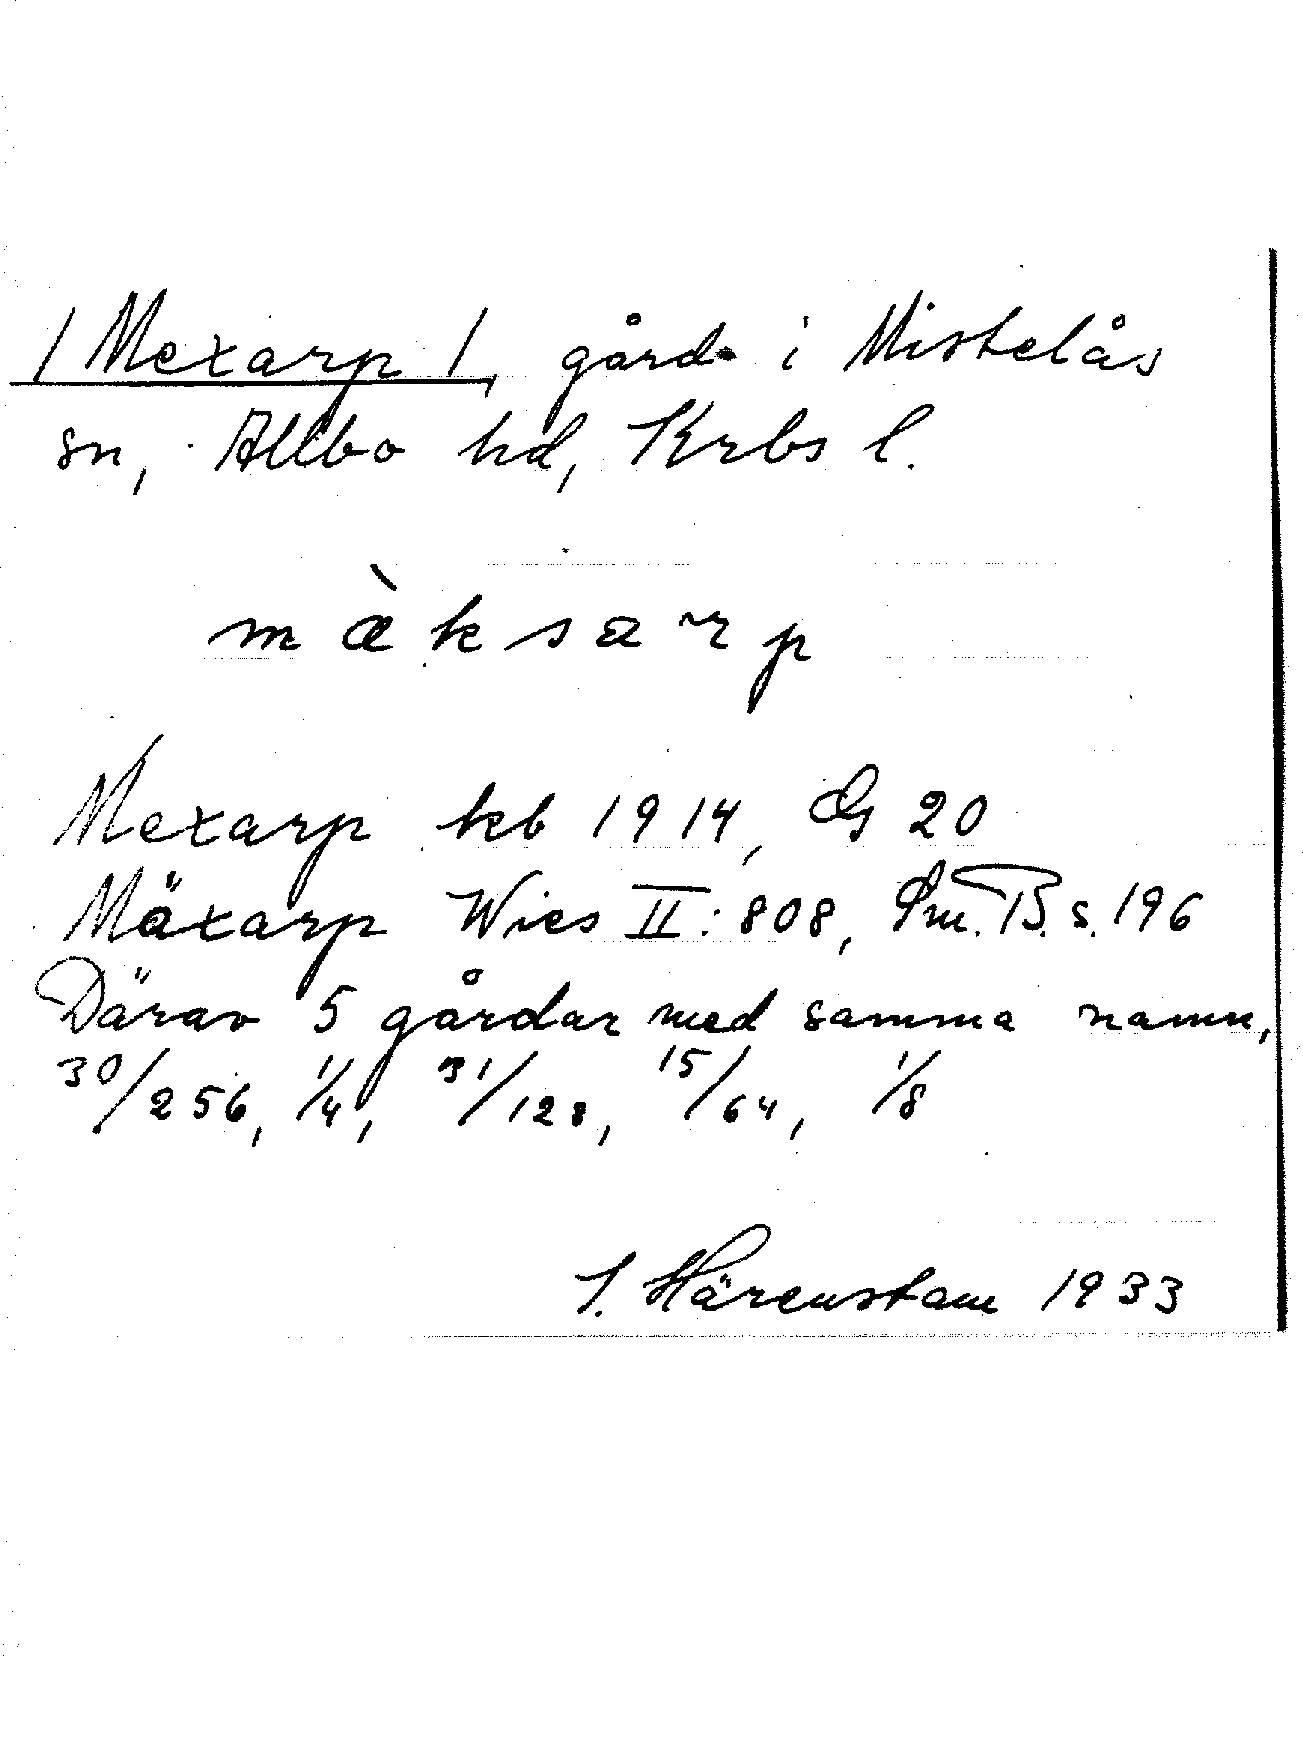 / Mexarp /, gård i Mistelås
sn, Allbo hd, Krbs l.
mæ̀ksarp
Mexarp kb 1914, GS 20
Mäxarp Wies II: 808, Sm. B. s. 196
Därav 5 gårdar med samma namn,
30/256, 1/4, 31/128, 15/64, 1/8
I. Härenstam 1933